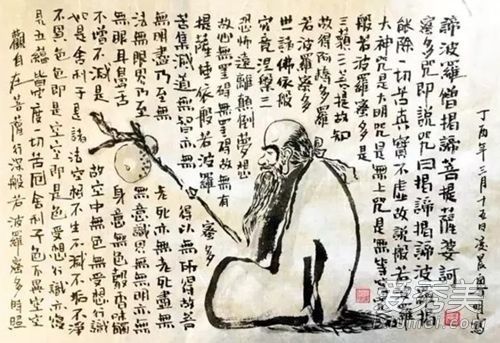 觀自在菩薩行深般若波羅蜜多時照
見五蘊皆空度一切苦厄舍利子色不異空空
不異色色即是空空即是色受想行識亦復
如是舍利子是諸法空相不生不滅不垢不淨
不增不減是故空中無色無受想行識
無眼耳鼻舌身意無色聲香味觸
法無眼界乃至無意識界無無明亦無
無明盡乃至老死亦無老死盡無
苦集滅道無智亦無得以無所得故菩
提薩埵依般若波羅蜜多
故心無罣礙無罣礙故無有
恐怖遠離顛倒夢想
究竟涅槃三
世諸佛依般
若波羅蜜多
故得阿耨多羅
三藐三菩提故知
般若波羅蜜多是
大神咒是大明咒是無上咒是無等
能除一切苦真實不虛故說般若波羅
蜜多咒即說咒曰揭諦揭諦波羅揭
諦波羅僧揭諦菩提薩婆訶
丁酉年三月十五日凌晨
爱秀美